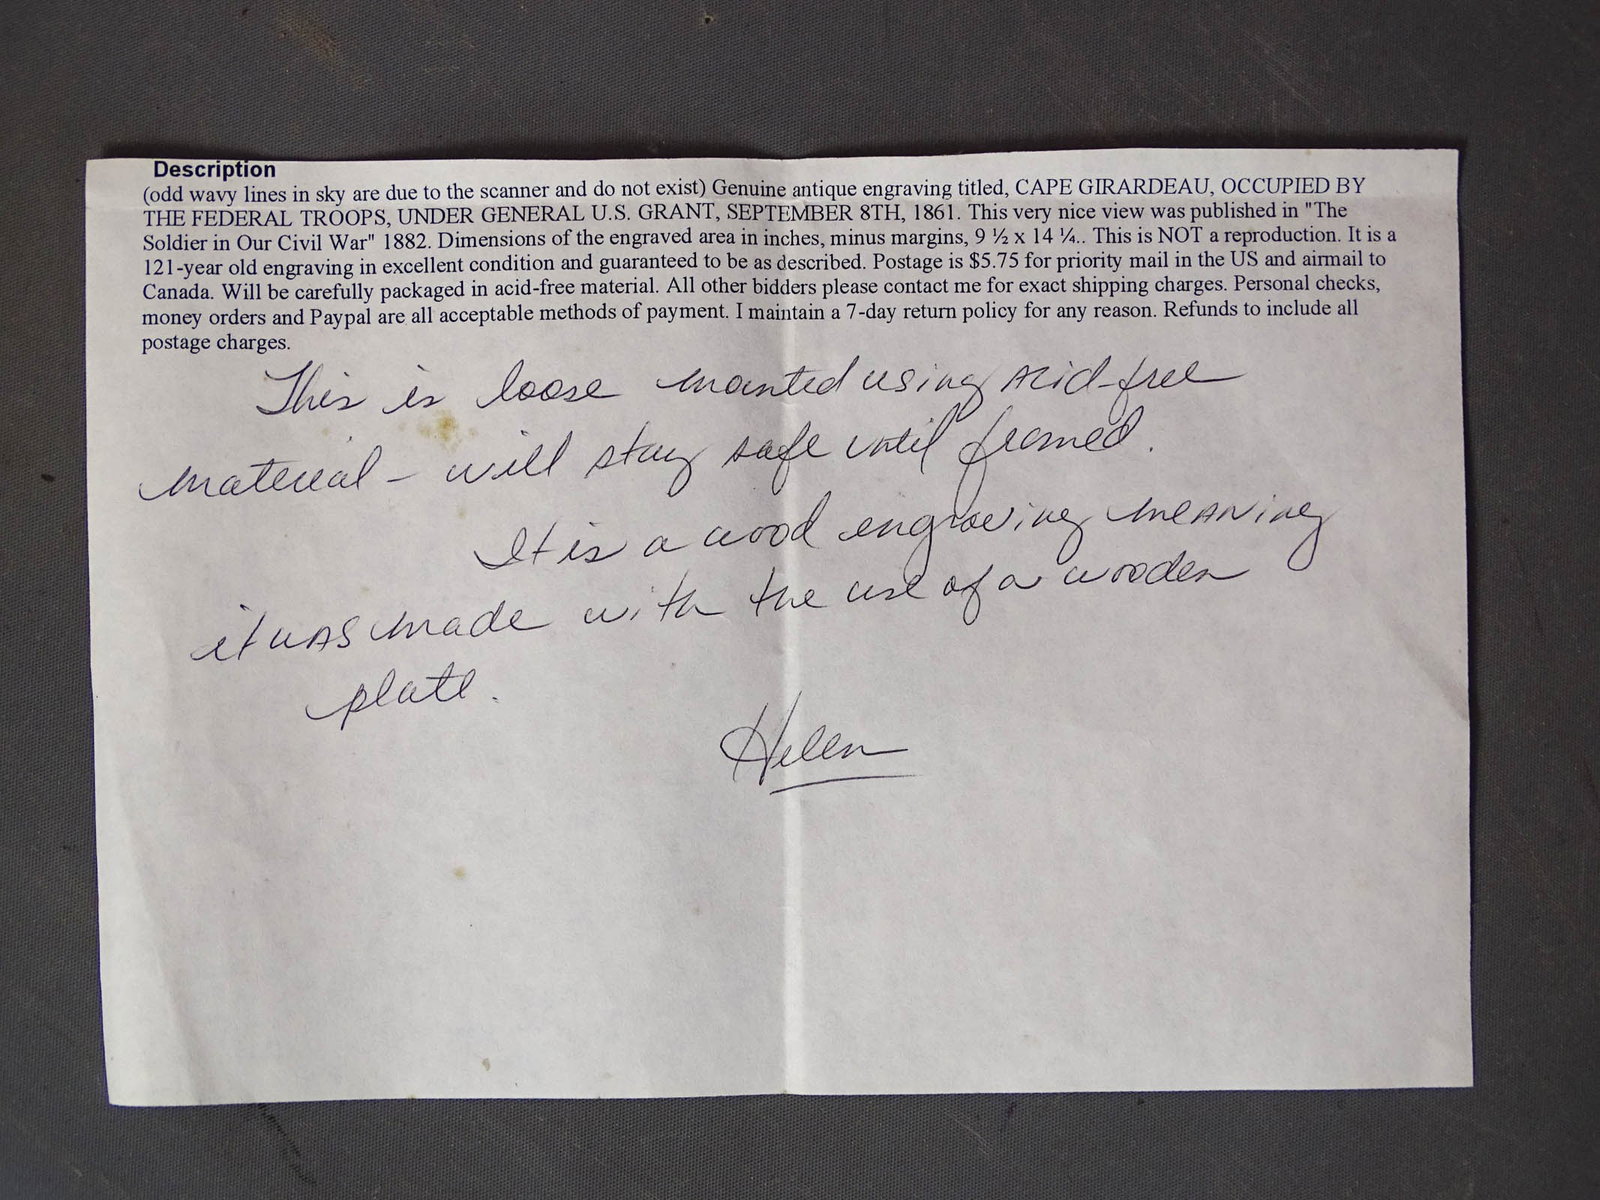 Description
(odd wavy lines in sky are due to the scanner and do not exist) Genuine antique engraving titled, CAPE GIRARDEAU, OCCUPIED BY
THE FEDERAL TROOPS, UNDER GENERAL U.S. GRANT, SEPTEMBER 8TH, 1861. This very nice view was published in "The
Soldier in Our Civil War" 1882. Dimensions of the engraved area in inches, minus margins, 9 ½ x 14 ¼.. This is NOT a reproduction. It is a
121-year old engraving in excellent condition and guaranteed to be as described. Postage is $5.75 for priority mail in the US and airmail to
Canada. Will be carefully packaged in acid-free material. All other bidders please contact me for exact shipping charges. Personal checks,
money orders and Paypal are all acceptable methods of payment. I maintain a 7-day return policy for any reason. Refunds to include all
postage charges.
This is loose mounted using acid-free
material - will stay safe until framed.
It is a wood engraving meaning
it was made with the use of a wooden
plate.
Helen